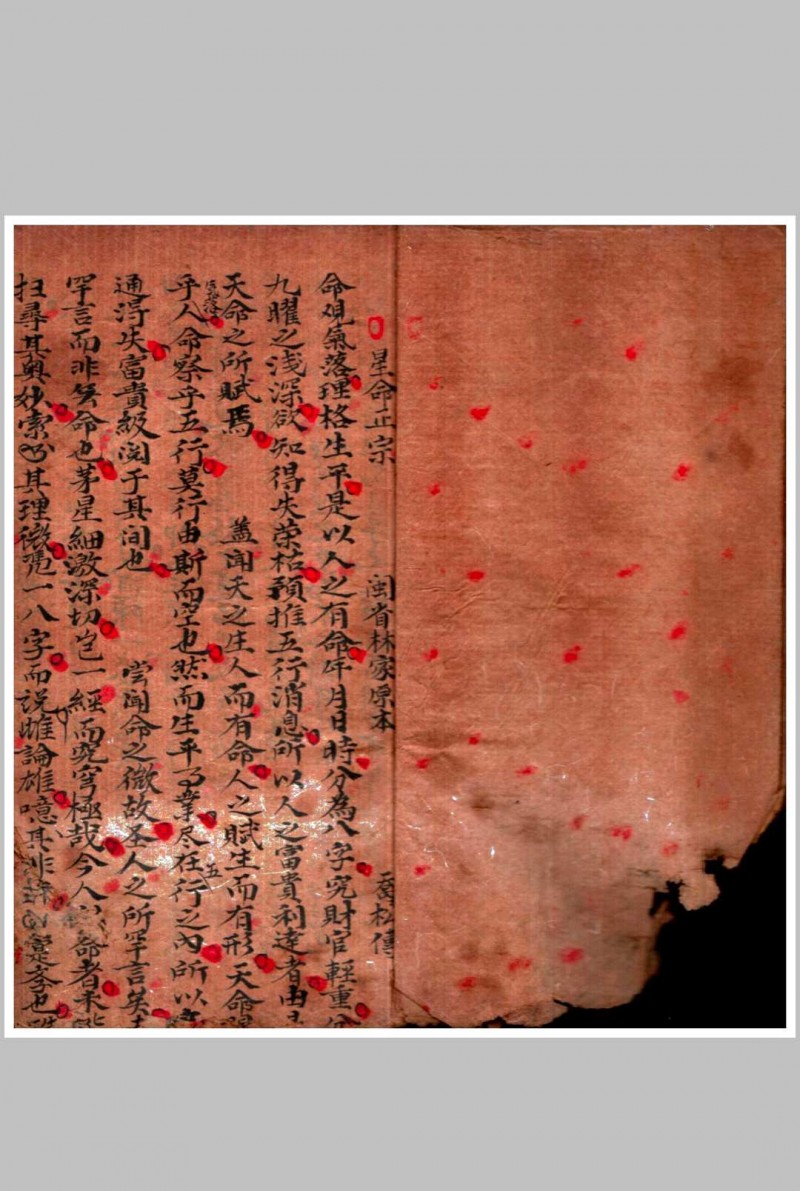 星命正宗 閩省林家原本 喬松傳
命观氣落理格生平是以人之有命年月日時分為八字究財官輕重
九曜之浅深欲知得失荣枯預推五行消息所以人之富貴利達者由
天命之所賦焉 蓋闻天之生人而有命人之賦生而有形天命
乎人命察乎五行莫行由斯而空也然而生平了業尽在五行之内所以
通得失富貴級闰于其间也 尝闻命之微故圣人之所罕言矣
罕言而非命也茅星細激深切包一經而究穹極哉今人命者未
扫尋其奥妙索其理微覺一八字而説雌論雄噫其非也